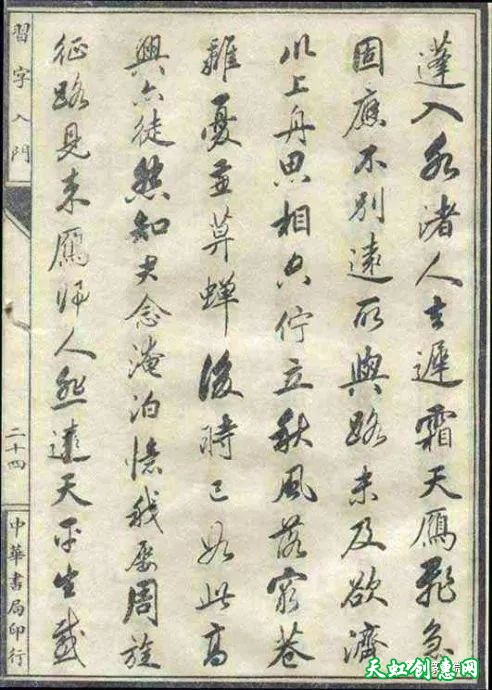 蓬入水渚人去遲霜天鴈飛急
固應不別遠所與路未及欲濟
川上舟思相空佇立秋風落窮巷
離憂並暮蟬後時已如此高
興亦徒然知君念淹泊憶我屢周旋
征路見來鴈歸人悲遠天平生感
習字入門
二十四
中華書局印行
天虹创意网